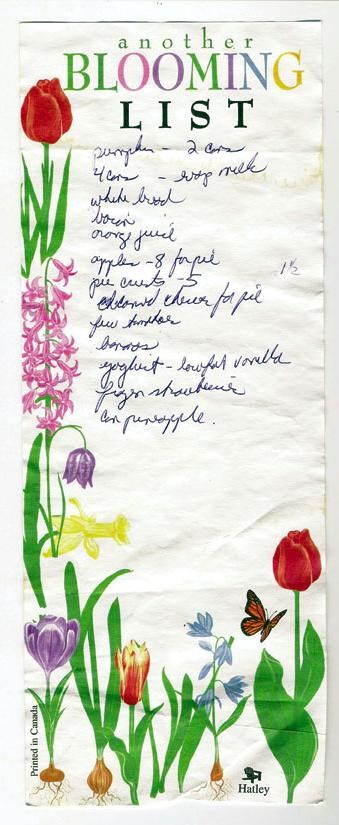 another
BLOOMING
LIST
pumpkin - 2 cans
4 cans - evap milk
white bread
bacon
orange juice
apples - 8 for pie
pie crusts - 5
1 ½
cheese for pie
few tomatoes
bananas
yoghurt - lowfat vanilla
frozen strawberries
can pineapple.
Printed in Canada
Hatley